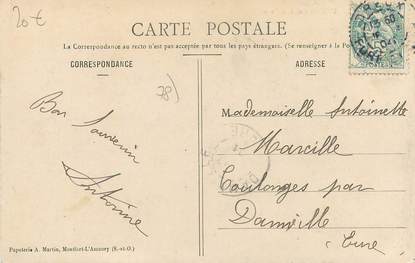 20€
CARTE POSTALE
La Correspondance au recto n'est pas acceptée par tous les pays étrangers. (Se renseigner à la Po
CORRESPONDANCE
ADRESSE
78)
Bon Souvenir
Antoine
Mademoiselle Antoinette
Marcille
Coulonges par
Damville
Eure
Papeterie A. Martin, Montfort-L'Amaury (S.-et-O.)